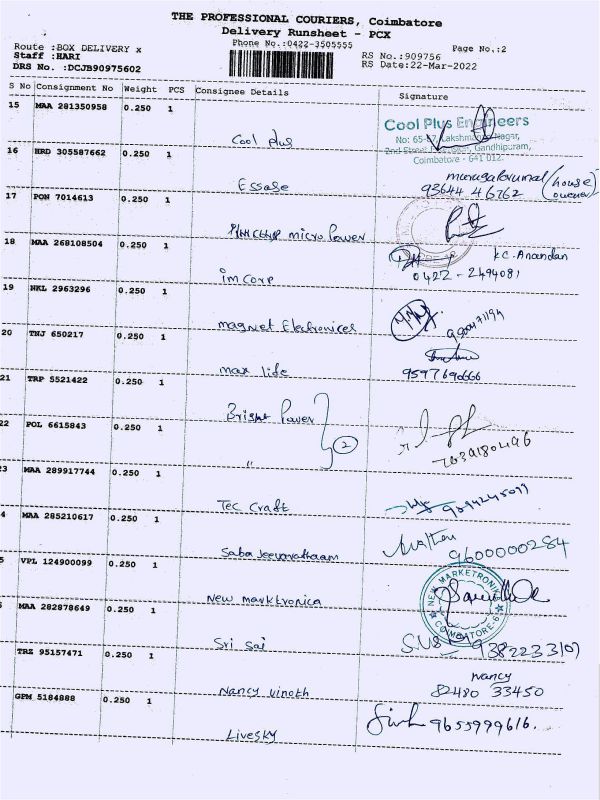 THE PROFESSIONAL COURIERS, Coimbatore
Delivery Runsheet - PCX
Phone No.:0422-3505555
Page No.:2
Route :BOX DELIVERY x
Staff :HARI
DRS No. :DCJB90975602
RS No.:909756
RS Date:22-Mar-2022
S No Consignment No Weight PCS Consignee Details Signature
15 MAA 281350958 0.250 1
Cool plus
Cool Plus Engineers
Nagar,
2nd Street, Gandhipuram,
Coimbatore - 641 012.
16 HRD 305587662 0.250 1
Essae
(house owner)
93644 46762
17 PON 7014613 0.250 1
micro Power
18 MAA 268108504 0.250 1
im corp
K.C. Anandan
0422 - 2494081
19 NKL 2963296 0.250 1
magnet Electronices
20 TNJ 650217 0.250 1
max life
9597690666
21 TRP 5521422 0.250 1
Bright Power
22 POL 6615843 0.250 1
" 2
3 MAA 289917744 0.250 1
Tec craft
4 MAA 285210617 0.250 1
Saba
9600000284
5 VPL 124900099 0.250 1
New marktronica
NEW MARKETRONI
COIMBATORE-6
MAA 282878649 0.250 1
Sri sai
TRZ 95157471 0.250 1
Nancy vinoth
Nancy
82480 33450
GPM 5184888 0.250 1
Livesky
9655999616.